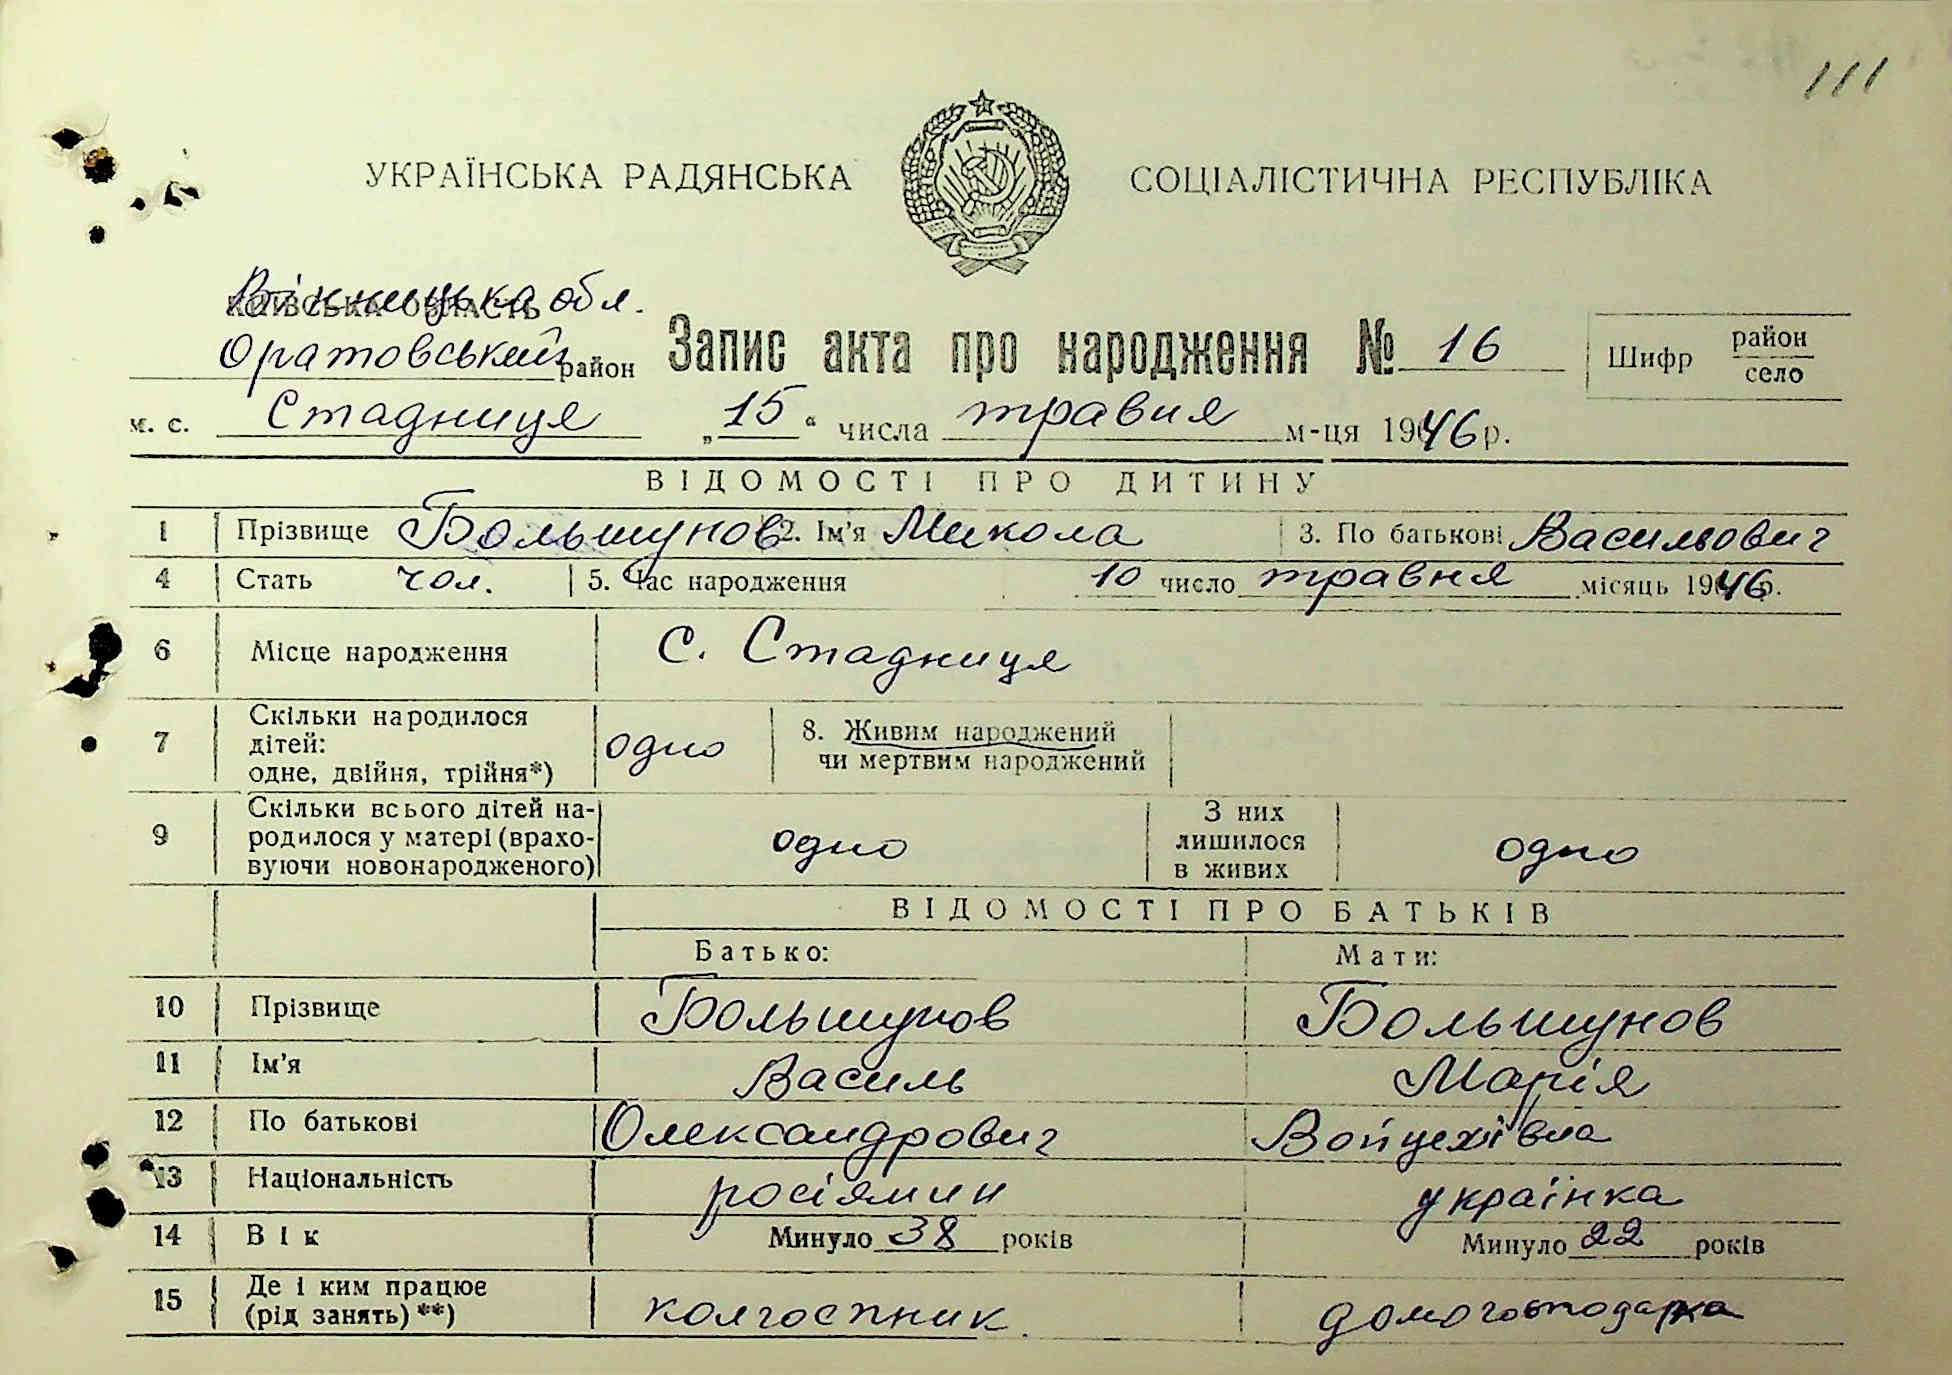 111
УКРАЇНСЬКА РАДЯНСЬКА СОЦІАЛІСТИЧНА РЕСПУБЛІКА
Вінницька обл.
КИЇВСЬКА ОБЛАСТЬ
Оратовський район Запис акта про народження № 16 Шифр район село
м. с. Стадниця „15“ числа травня м-ця 1946 р.
ВІДОМОСТІ ПРО ДИТИНУ
1 Прізвище Большунов 2. Ім'я Микола 3. По батькові Васильович
4 Стать чол. 5. Час народження 10 число травня місяць 1946 р.
6 Місце народження с. Стадниця
7 Скільки народилося дітей: одне, двійня, трійня*) одно 8. Живим народжений чи мертвим народжений
9 Скільки всього дітей на-
родилося у матері (врахо-
вуючи новонародженого) одно З них лишилося в живих одно
ВІДОМОСТІ ПРО БАТЬКІВ
Батько: Мати:
10 Прізвище Большунов Большунов
11 Ім'я Василь Марія
12 По батькові Олександрович Войцехівна
13 Національність росіянин українка
14 Вік Минуло 38 років Минуло 22 років
15 Де і ким працює
(рід занять) **) колгоспник домогосподарка